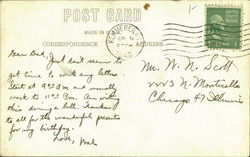 POST CARD
CORRESPONDENCE
ADDRESS
Dear Dad, Just don't seem to
get time to write any letters.
Start at 9:00 AM and usually
work to 11:00 P.M. Am writing
this during a lull. Thanks
to all for the wonderful presents
for my birthday.
Love,
Mr. W. N. Scott
2223 N. Monticello
Chicago 47 Illinois